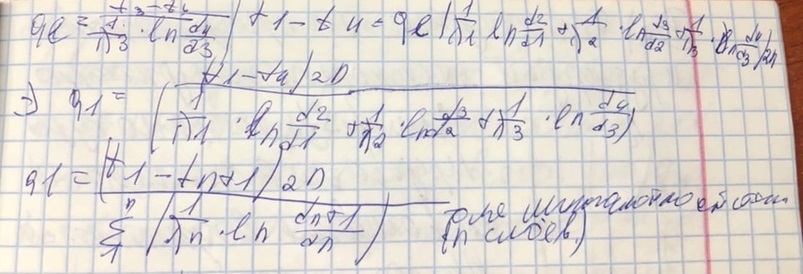 qe = t3-t4 / 1/λ3 · ln d4/d3 | t1-t4 = qe (1/λ1 ln d2/d1 + 1/λ2 · ln d3/d2 + 1/λ3 · ln d4/d3)/2π
=> q1 = (t1-t4)2π / (1/λ1 · ln d2/d1 + 1/λ2 · ln d3/d2 + 1/λ3 · ln d4/d3)
q1 = (t1-tn+1)2π / n Σ 1 (1/λn · ln dn+1/dn)
(n слоев)